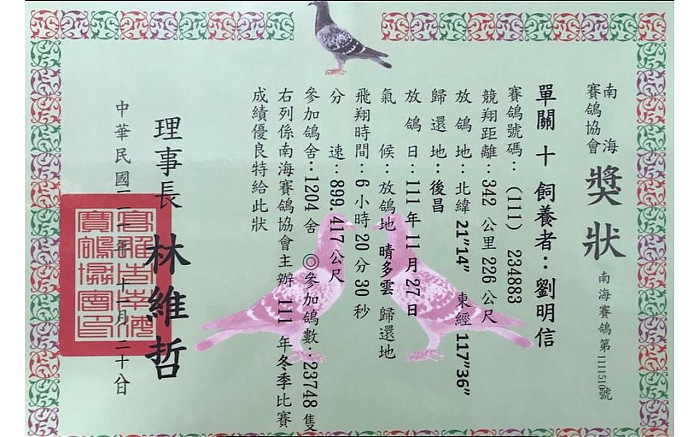 南海賽鴿協會
獎狀
南海賽鴿第1111510號
單關 十 飼養者：劉明信
賽鴿號碼：(111) 234883
競翔距離：342 公里 226 公尺
放鴿地：北緯 21"14" 東經 117"36"
歸還地：後昌
放鴿日：111 年 11 月 27 日
氣候：放鴿地 晴多雲 歸還地
飛翔時間：6 小時 20 分 30 秒
分速：899.417 公尺
參加鴿舍：1204 舍 ◎參加鴿數：23748 隻
右列係南海賽鴿協會主辦 111 年冬季比賽
成績優良特給此狀
理事長 林維哲
中華民國